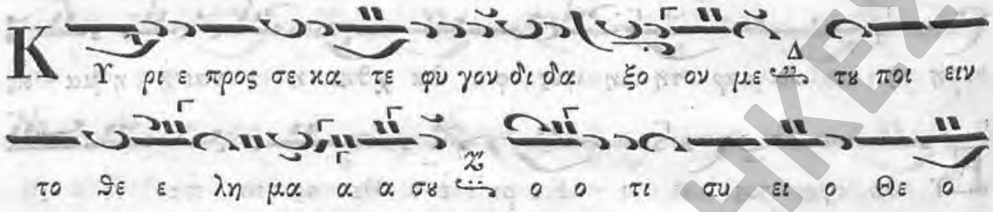 Κ Υ ρι ε προς σε κα τε φυ γον δι δα ξο ον με Δ τȣ ποι ειν
το θε ε λη μα α α σȣ Ζ ο ο τι συ ει ο Θε ο